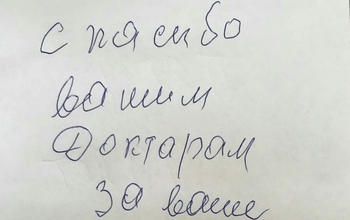 спасибо
вашим
Доктарам
за ваше